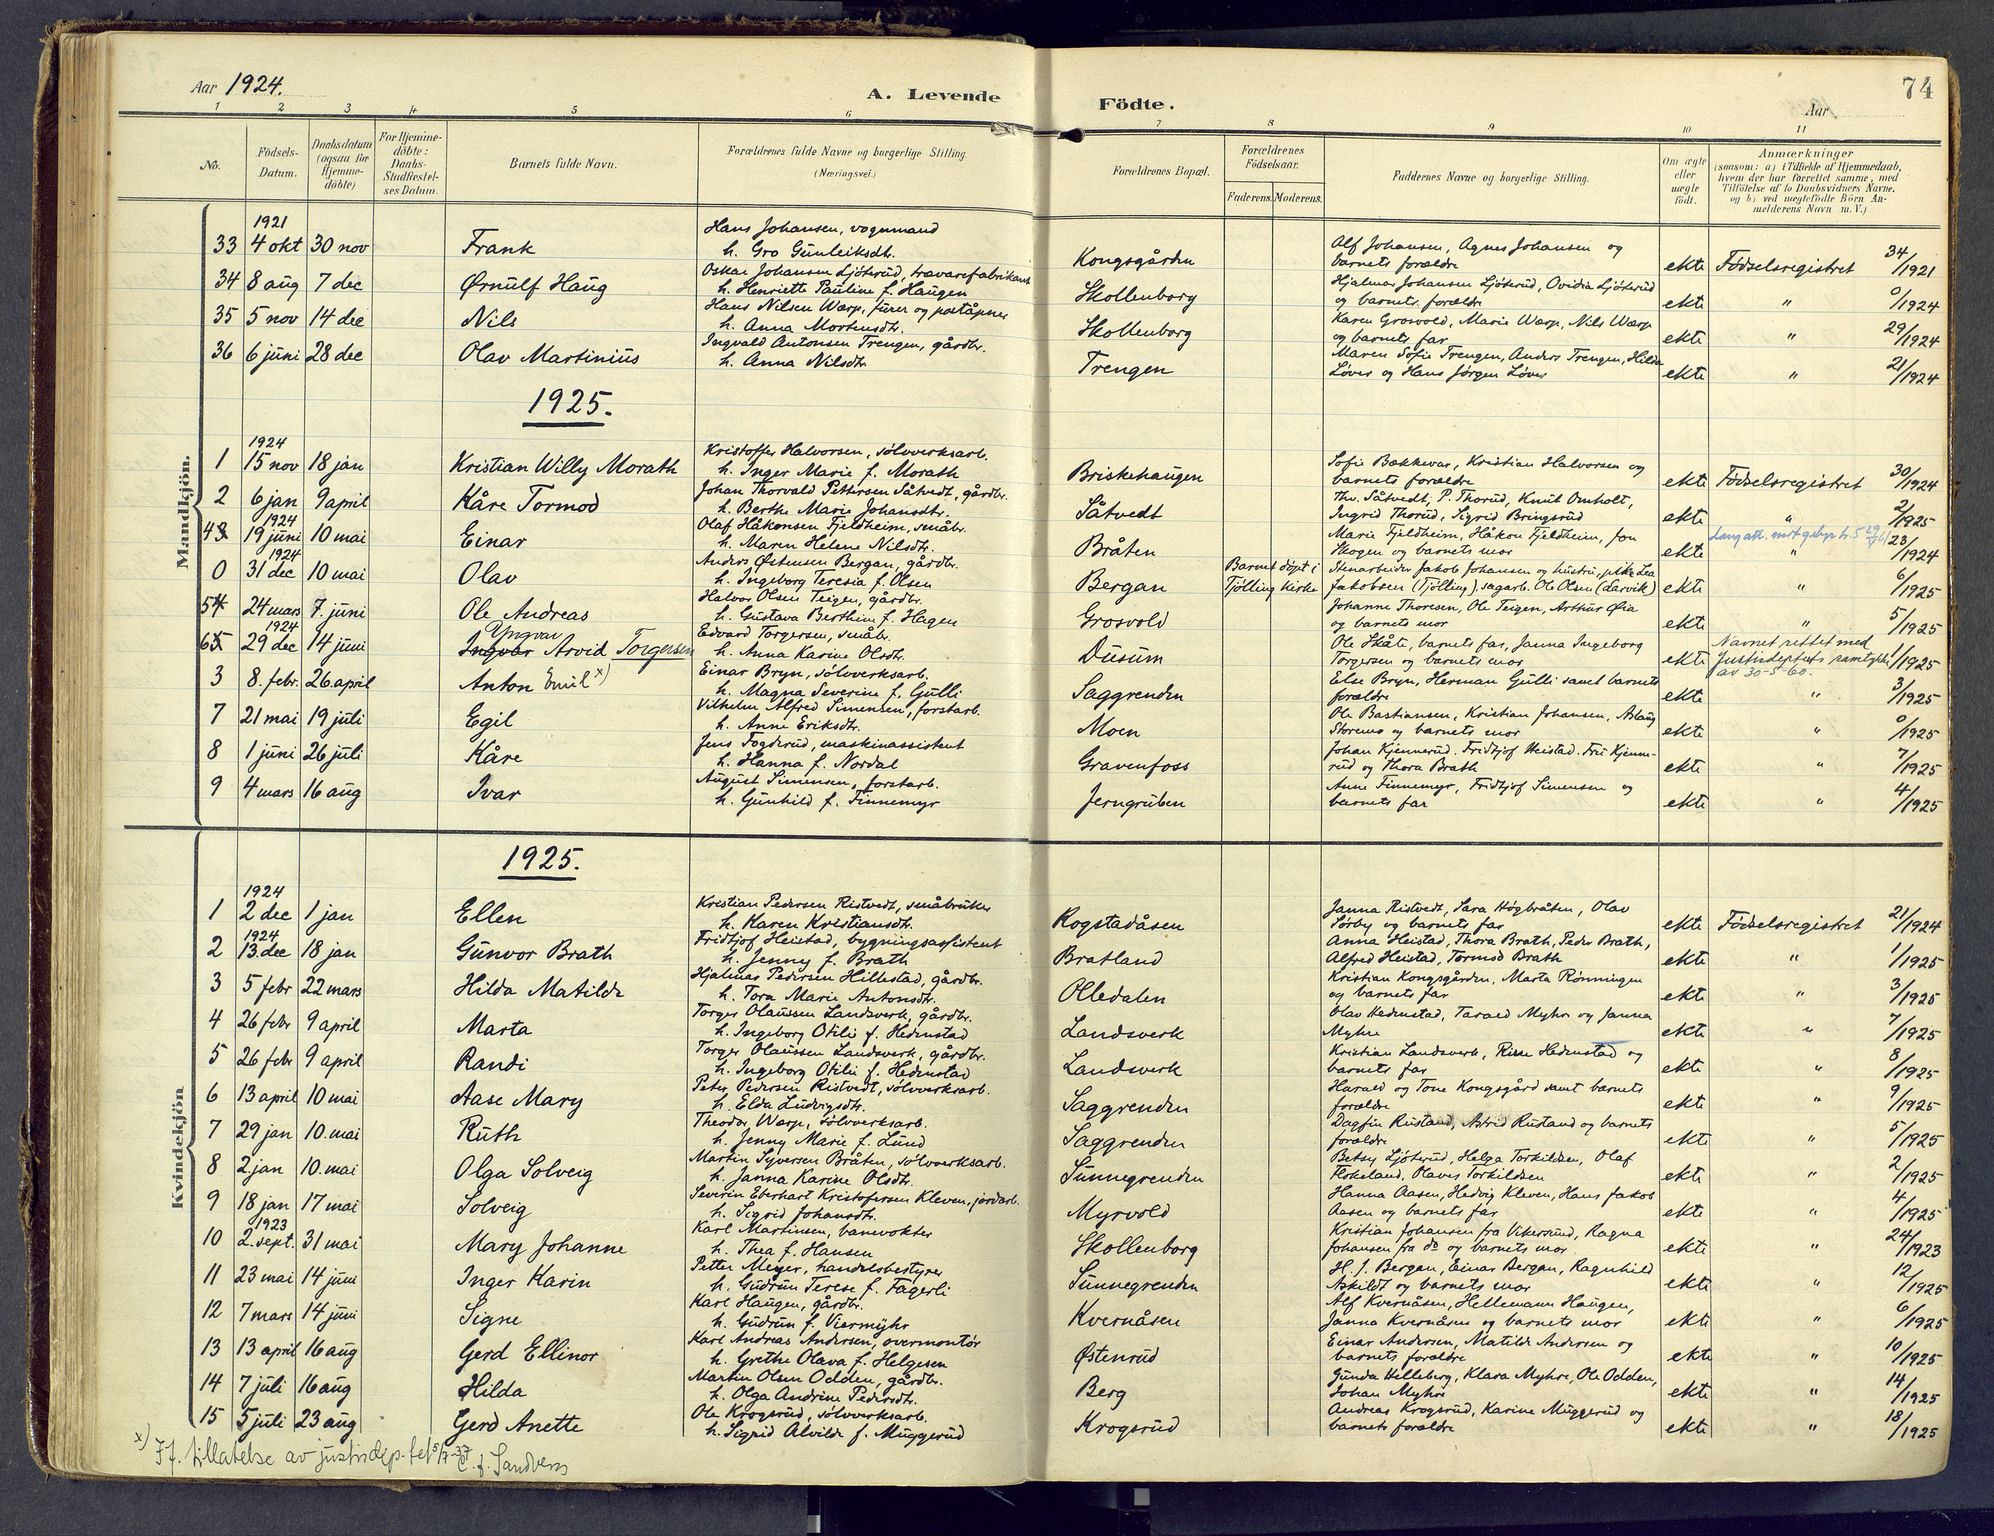 Aar 1924.
A. Levende Födte.
Aar
74
1 2 3 4 5 6 7 8 9 10 11
No.
Födsels-Datum.
Daabsdatum (ogsaa for Hjemme-döbte)
For Hjemme-döbte: Daabs-Stadfæstel-ses Datum.
Barnets fulde Navn.
Forældrenes fulde Navne og borgerlige Stilling. (Næringsvei.)
Forældrenes Bopæl.
Forældrenes Födselsaar.
Faderens. Moderens.
Faddernes Navne og borgerlige Stilling.
Om ægte eller uægte födt.
Anmærkninger
(saasom: a) i Tilfælde af Hjemmedaab, hvem der har forrettet samme, med Tilföielse af to Daabsvidners Navne, og b) ved uægtefödte Börn An-melderens Navn m. V.)
Mandkjön.
1921
33 4 okt 30 nov Frank Hans Johansen, vognmand h. Gro Gunleiksdtr. Kongsgården Alf Johansen, Agnes Johansen og barnets forældre ekte Fødselsregistret 34/1921
34 8 aug 7 dec Ørnulf Haug Oskar Johansen Ljøterud, trævarefabrikant h. Henriette Pauline f. Haugen Skollenborg Hjalmar Johansen Ljøterud, Ovidia Ljøterud og barnets forældre ekte " 0/1924
35 5 nov 14 dec Nils Hans Nilsen Wærp, fører og poståpner h. Anna Mortensdtr. Skollenborg Karen Grosvold, Marie Wærp, Nils Wærp og barnets far ekte " 29/1924
36 6 juni 28 dec Olav Martinius Ingvald Antonsen Trengen, gårdbr. h. Anna Nilsdtr. Trengen Maren Sofie Trengen, Anders Trengen, Hilda Løver og Hans Jørgen Løver ekte " 21/1924
1925.
1924
1 15 nov 18 jan Kristian Willy Morath Kristoffer Halvorsen, sølvverksarb. h. Inger Marie f. Morath Briskehaugen Sofie Bækkevar, Kristian Halvorsen og barnets forældre ekte Fødselsregistret 30/1924
2 6 jan 9 april Kåre Tormod Johan Thorvald Pettersen Såtvedt, gårdbr. h. Berthe Marie Johansdtr. Såtvedt Thv. Såtvedt, P. Thorud, Knut Omholt, Ingrid Thorud, Sigrid Bringsrud ekte " 2/1925
1924
4 19 juni 10 mai Einar Olaf Håkonsen Fjeldheim, småbr. h. Maren Helene Nilsdtr. Bråten Marie Fjeldheim, Håkon Fjeldheim, Skogen og barnets mor ekte " 23/1924
1924
0 31 dec 10 mai Olav Anders Østensen Bergan, gårdbr. h. Ingeborg Teresia f. Olsen Bergan Barnet døpt i Tjølling Kirke Stenarbeider Jakob Johansen og hustru, Lea Jakobsen (Tjølling), sagarb. Ole Olsen (Larvik) ekte " 6/1925
5 24 mars 7. juni Ole Andreas Halvor Olsen Teigen, gårdbr. h. Gustava Berthine f. Hagen Grosvold Johanne Thoresen, Ole Teigen, Arthur Øia og barnets mor ekte 5/1925
1924
6 29 dec 14 juni Ingvar Yngvar Arvid Torgersen Edvard Torgersen, småbr. h. Anna Karine Olsdtr. Dusum Ole Skåte, barnets far, Janna Ingeborg Torgersen og barnets mor ekte Navnet rettet med Justisdeptets samtykke av 30-5-60. 1/1925
3 8. febr. 26. april Anton Emil x) Einar Bryn, sølvverksarb. h. Magna Severine f. Gulli Saggrenden Else Bryn, Herman Gulli samt barnets forældre ekte " 3/1925
7 21 mai 19 juli Egil Vilhelm Alfred Simensen, forstarb. h. Anne Eriksdtr. Moen Ole Bastiansen, Kristian Johansen, Aslaug Storemo og barnets mor ekte " 0/1925
8 1 juni 26 juli Kåre Jens Fogderud, maskinassistent h. Hanna f. Nordal Gravenfoss Johan Kjennerud. Fridtjof Heistad. Fru Kjennerud og Thora Brath ekte " 7/1925
9 4 mars 16 aug Ivar August Simensen, forstarb. h. Gunhild f. Finnemyr Jerngruben Anne Finnemyr, Fridtjof Simensen og barnets far ekte " 4/1925
Kvindekjön
1925.
1924
1 2 dec 1 jan Ellen Kristian Pedersen Ristvedt, småbruker h. Karen Kristiansdtr. Rogstadåsen Janna Ristvedt, Sara Høgbråten, Olav Sørby og barnets far ekte Fødselsregistret 21/1924
1924
2 13. dec 18 jan Gunvor Brath Fridtjof Heistad, bygningsassistent h. Jenny f. Brath Bratland Anna Heistad, Thora Brath, Peder Brath, Alfred Heistad, Tormod Brath ekte " 1/1925
3 5 febr 22 mars Hilda Matilde Hjalmar Pedersen Hillestad, gårdbr. h. Tora Marie Antonsdtr. Olledalen Kristian Kongsgården, Marta Rønningen og barnets far ekte " 3/1925
4 26 febr 9 april Marta Torger Olaussen Landsverk, gårdbr. h. Ingeborg Otilie f. Hedenstad Landsverk Olav Hedenstad, Tarald Myhre og Janna Myhre ekte " 7/1925
5 26 febr 9 april Randi Torger Olaussen Landsverk, gårdbr. h. Ingeborg Otilie f. Hedenstad Landsverk Kristian Landsverk, Hedenstad og barnets far ekte " 8/1925
6 13 april 10 mai Aase Mary Peter Pedersen Ristvedt, sølvverksarb. h. Elda Ludvigsdtr. Saggrenden Harald og Tone Kongsgård samt barnets forældre ekte " 9/1925
7 29 jan 10. mai Ruth Theodor Wærp, sølvverksarb. h. Jenny Marie f. Lund Saggrenden Dagfin Rustand, Astrid Rustand og barnets forældre ekte " 5/1925
8 2. jan 10. mai Olga Solveig Martin Syversen Bråten, sølvverksarb. h. Janna Karine Olsdtr. Sunnegrenden Betsy Ljøterud, Helga Torkildsen, Olaf Flokeland, Olaves Torkildsen ekte " 2/1925
9 18 jan 17 mai Solveig Severin Eberhart Kristofersen Kleven, jordarb. h. Sigrid Johansdtr. Myrvold Hanna Aasen, Hedvig Kleven, Hans Jakob Aasen og barnets far ekte " 4/1925
1923
10 2. sept. 31 mai Mary Johanne Karl Martinsen, banevokter h. Thea f. Hansen Skollenborg Kristian Johansen fra Vikersund, Ragna Johansen fra do og barnets mor ekte " 24/1923
11 23 mai 14 juni Inger Karin Petter Meyer, handelsbestyrer h. Gudrun Terese f. Fagerli Sunnegrenden H. J. Bergan, Einar Bergan, Ragnhild Askildt og barnets mor ekte " 12/1925
12 7 mars 14 juni Signe Karl Haugen, gårdbr. h. Gudrun f. Viermyhr Kvernåsen Alf Kvernåsen, Hellemann Haugen, Janna Kvernåsen og barnets mor ekte " 6/1925
13 13 april 16 aug Gerd Ellinor Karl Andreas Andersen, overmontør h. Grethe Olava f. Helgesen Østenrud Einar Andersen, Matilde Andersen og barnets forældre ekte " 10/1925
14 7 juli 16 aug Hilda Martin Olsen Odden, gårdbr. h. Olga Andrine Pedersdtr. Berg Gunda Hilleberg, Klara Myhre, Ole Odden, Johan Myhre ekte " 14/1925
15 5 juli 23 aug Gerd Anette Ole Krogsrud, sølvverksarb. h. Sigrid Alvilde f. Muggerud Krogsrud Andreas Krogsrud, Karine Muggerud og barnets forældre ekte " 18/1925
x) Ff. tillatelse av justisdep.tet 5/7-37